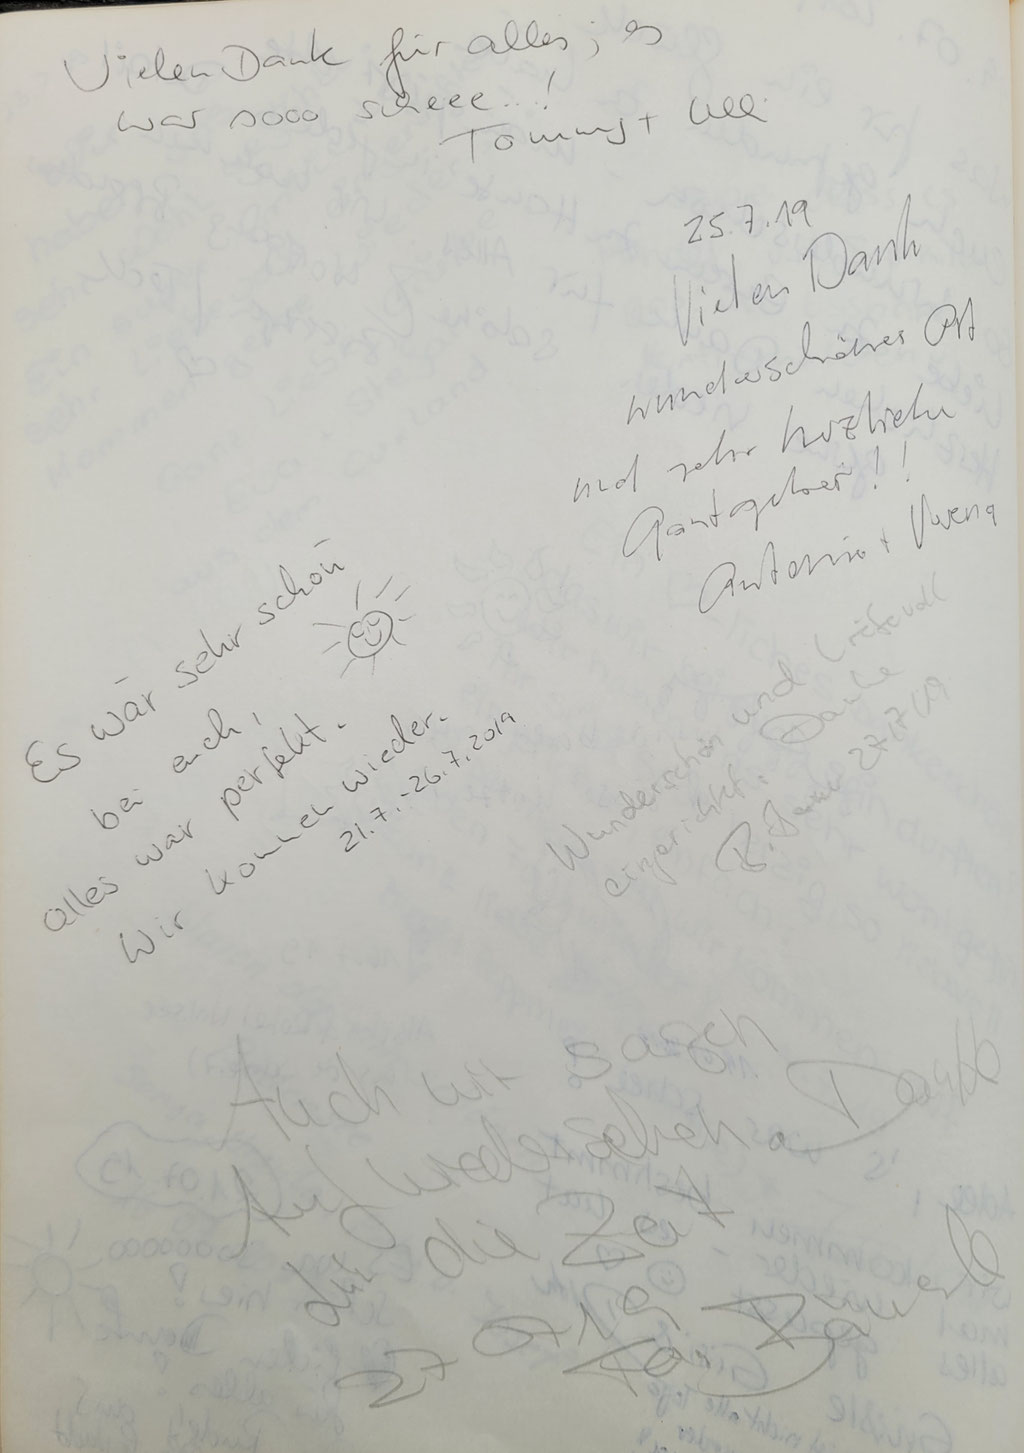 Vielen Dank für alles, es
war sooo scheee...!
Tommy + Ulli
25.7.19
Vielen Dank
wunderschöner Ort
und sehr herzliche
Gastgeber!!
Antonio + Verena
Es war sehr schön
bei euch,
alles war perfekt.
Wir kommen wieder.
21.7.-26.7.2019
Wunderschön und liebevoll
eingerichtet. Danke
27.07.19
Auch wir sagen
Auf wiedersehen Danke
für die Zeit
27 07 19